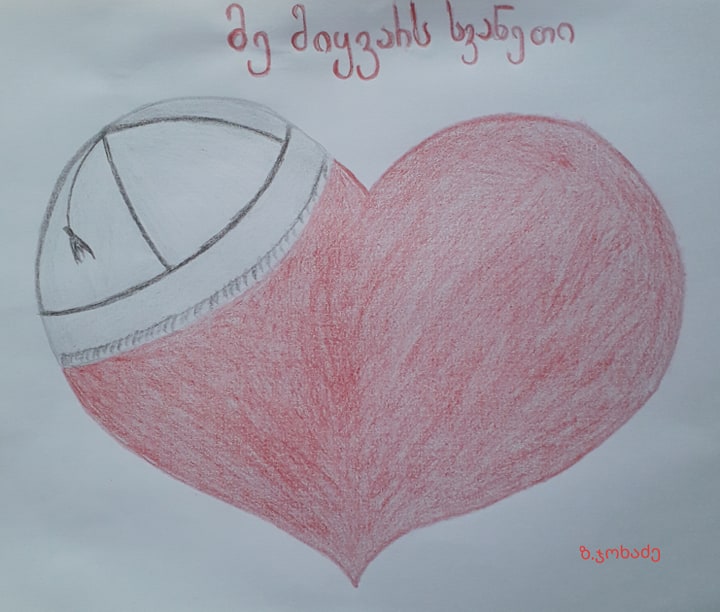 მე მიყვარს სვანეთი
ზ.ჯოხაძე